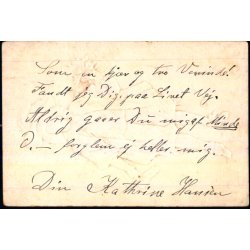 Som en kjær og tro Veninde!
Fandt jeg Dig, paa Livet Vej.
Aldrig gaaer Du mig af Minde
D. — forglem ej heller mig.
Din Kathrine Hansen